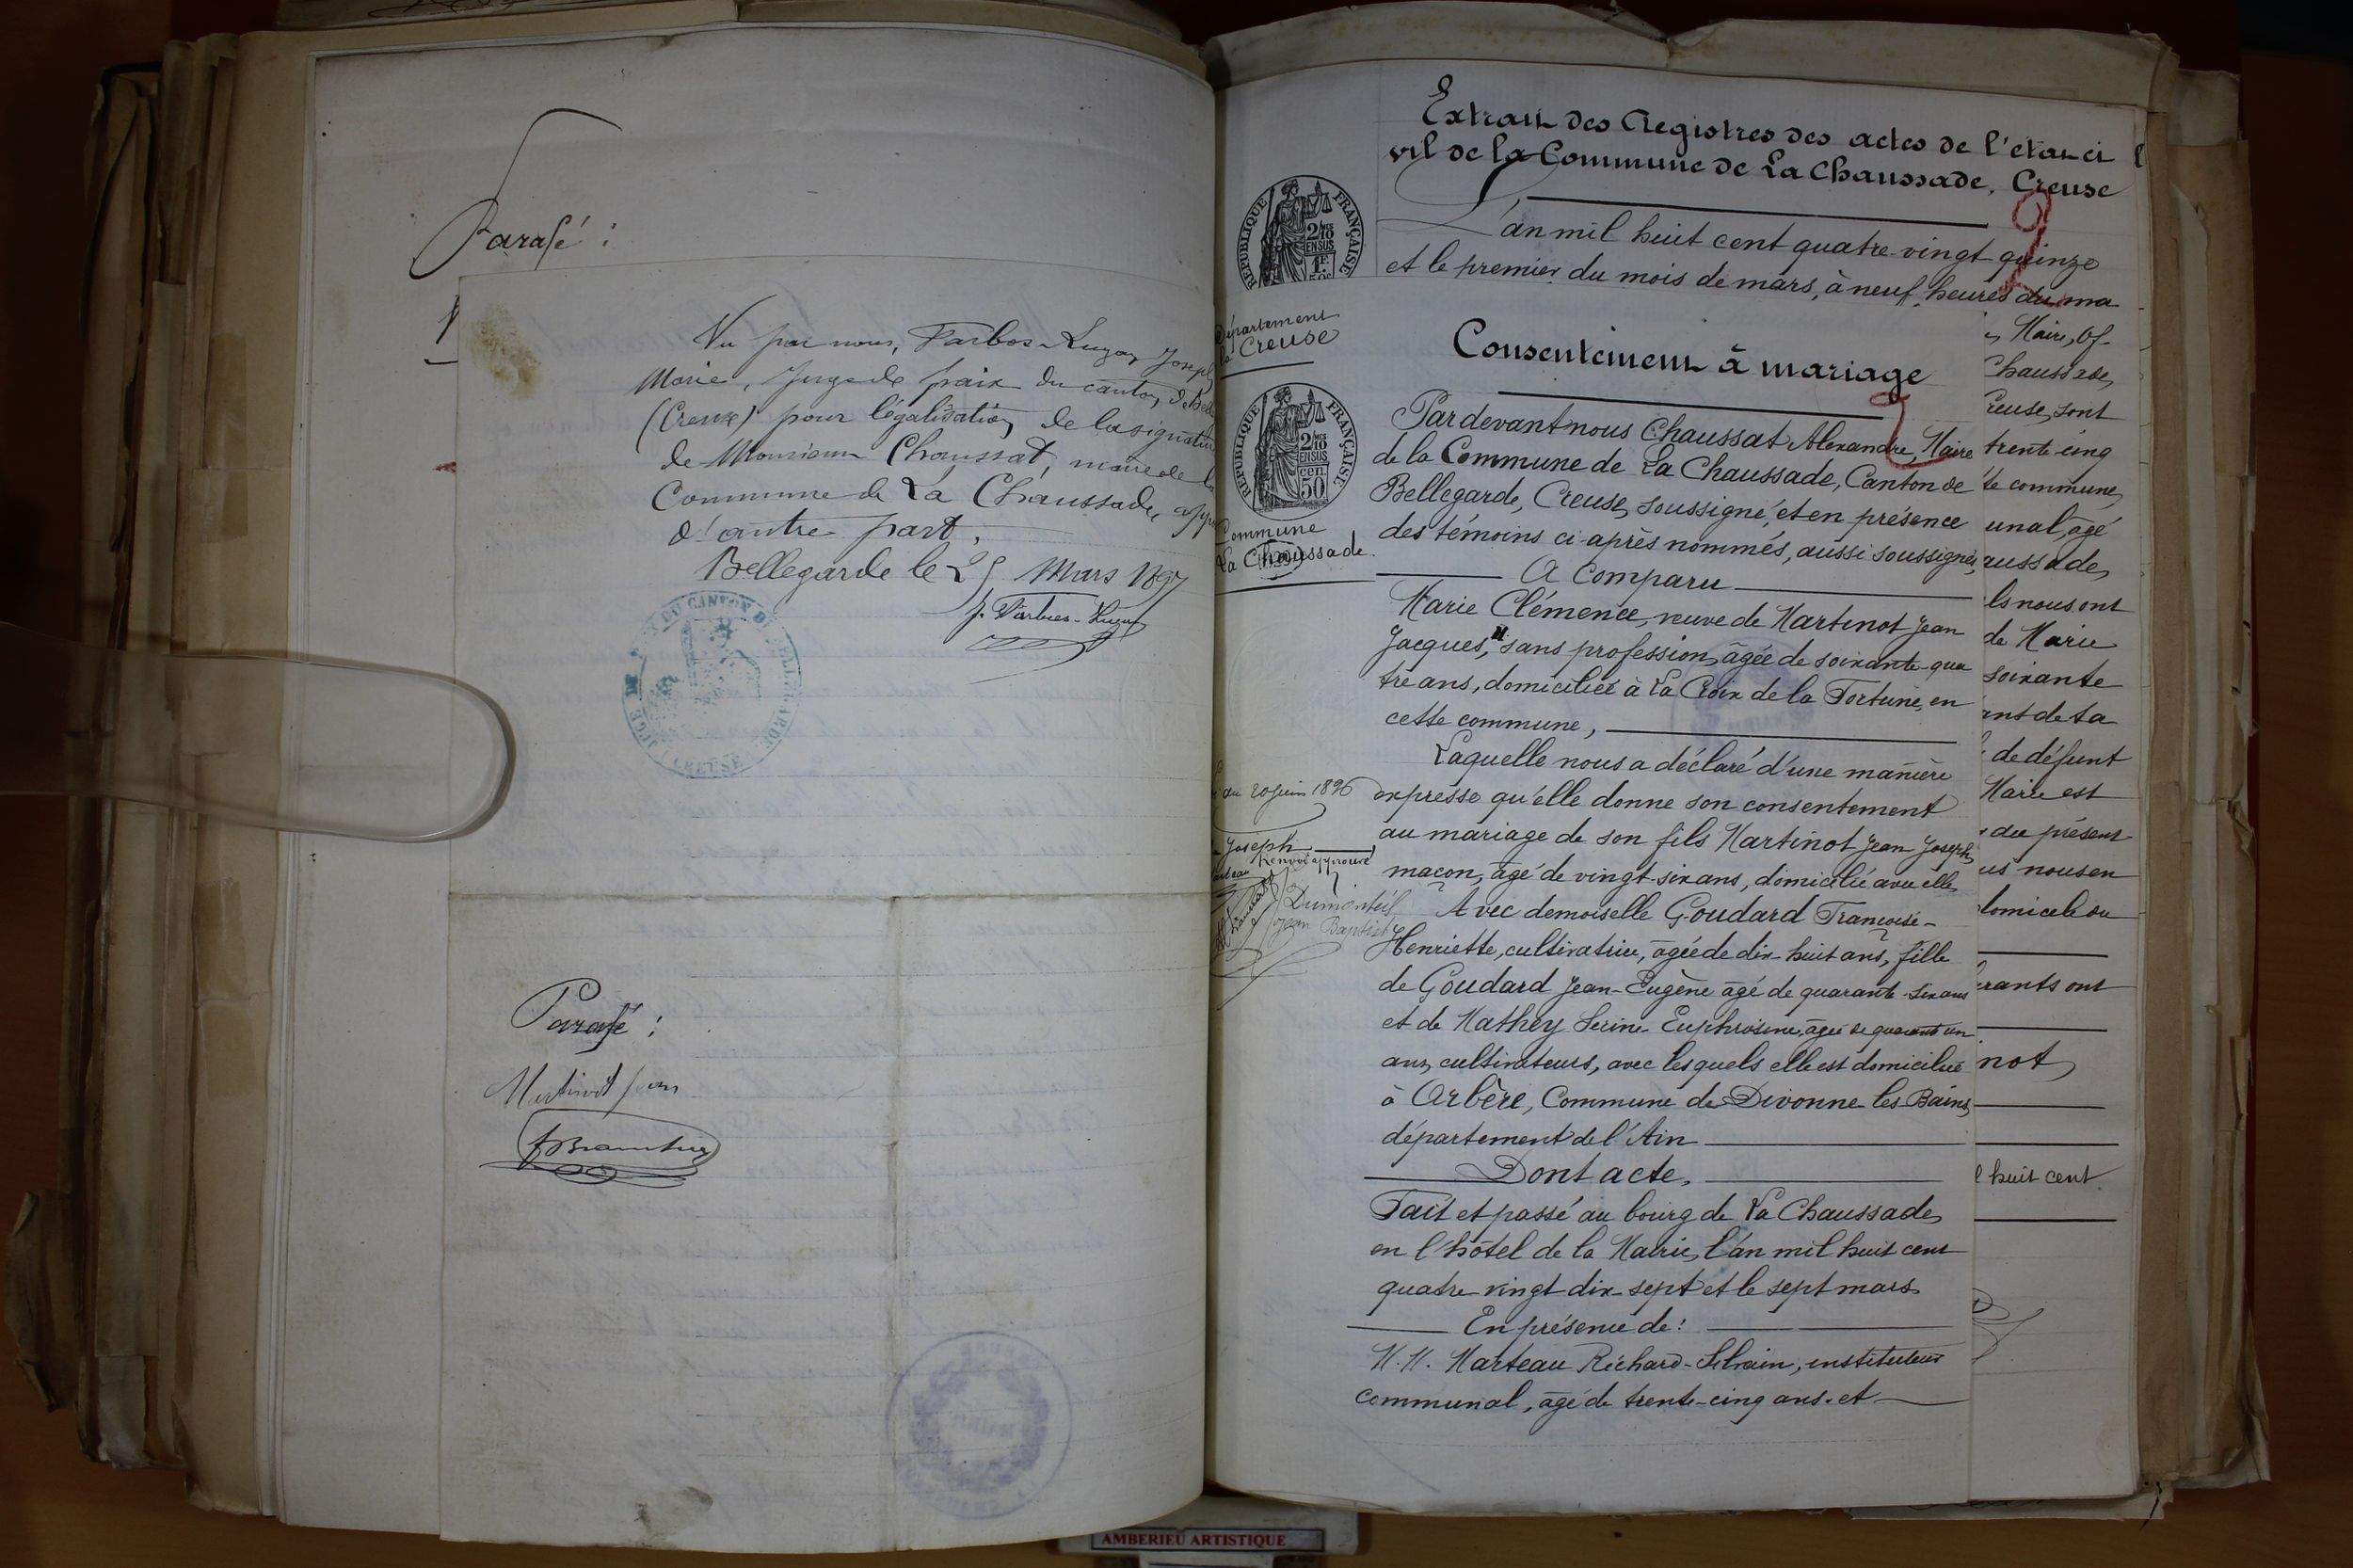 Parafé :
Vu par nous, Joseph
Marie, Juge de paix du canton de Belle
(Creuse) pour légalisation de la signature
de Monsieur Chaussat, maire de la
Commune de La Chaussade, appo
d'autre part.
Bellegarde le 25 Mars 1897
JUGE DE PAIX DU CANTON DE BELLEGARDE
(CREUSE)
Parafé :
Martinot Jean
Extrait des Registres des actes de l'état ci
vil de la Commune de La Chaussade, Creuse
L'an mil huit cent quatre-vingt quinze
et le premier du mois de mars, à neuf heures du ma
RÉPUBLIQUE FRANÇAISE
2/10 EN SUS
1F 50c
Département
la Creuse
RÉPUBLIQUE FRANÇAISE
2/10 EN SUS
50 cen
Commune
La Chaussade.
Consentement à mariage
Par devant nous Chaussat Alexandre, Maire
de la Commune de La Chaussade, Canton de
Bellegarde, Creuse, soussigné, et en présence
des témoins ci-après nommés, aussi soussignés,
A Comparu
Marie Clémence, veuve de Martinot Jean
Jacques, sans profession, âgée de soixante-qua
tre ans, domiciliée à La Croix de la Fortune, en
cette commune,
Laquelle nous a déclaré d'une manière
expresse qu'elle donne son consentement
au mariage de son fils Martinot Jean Joseph,
maçon, âgé de vingt-six ans, domicilié avec elle
Avec demoiselle Goudard Françoise-
Henriette, cultivatrice, âgée de dix-huit ans, fille
de Goudard Jean-Eugène âgé de quarante-six ans
et de Mathey Serine Euphroisine, âgée de quarante un
ans, cultivateurs, avec lesquels elle est domiciliée
à Arbère, Commune de Divonne les Bains,
département de l'Ain
Dont acte,
Fait et passé au bourg de La Chaussade,
en l'hôtel de la Mairie, l'an mil huit cent
quatre vingt dix-sept et le sept mars
En présence de :
M.M. Marteau Richard-Silvain, instituteur
communal, âgé de trente-cinq ans. et
du 20 juin 1896
Joseph
Renvoi approuvé
Dumonteil
Jean Baptiste
Maire, Of-
Chaussade,
Creuse, sont
trente-cinq
te commune,
unal, âgé
aussade,
ls nous ont
de Marie
soixante
ant de sa
de défunt
Marie est
du présent
us nous en
domicile du
rants ont
not,
l huit cent
AMBERIEU ARTISTIQUE